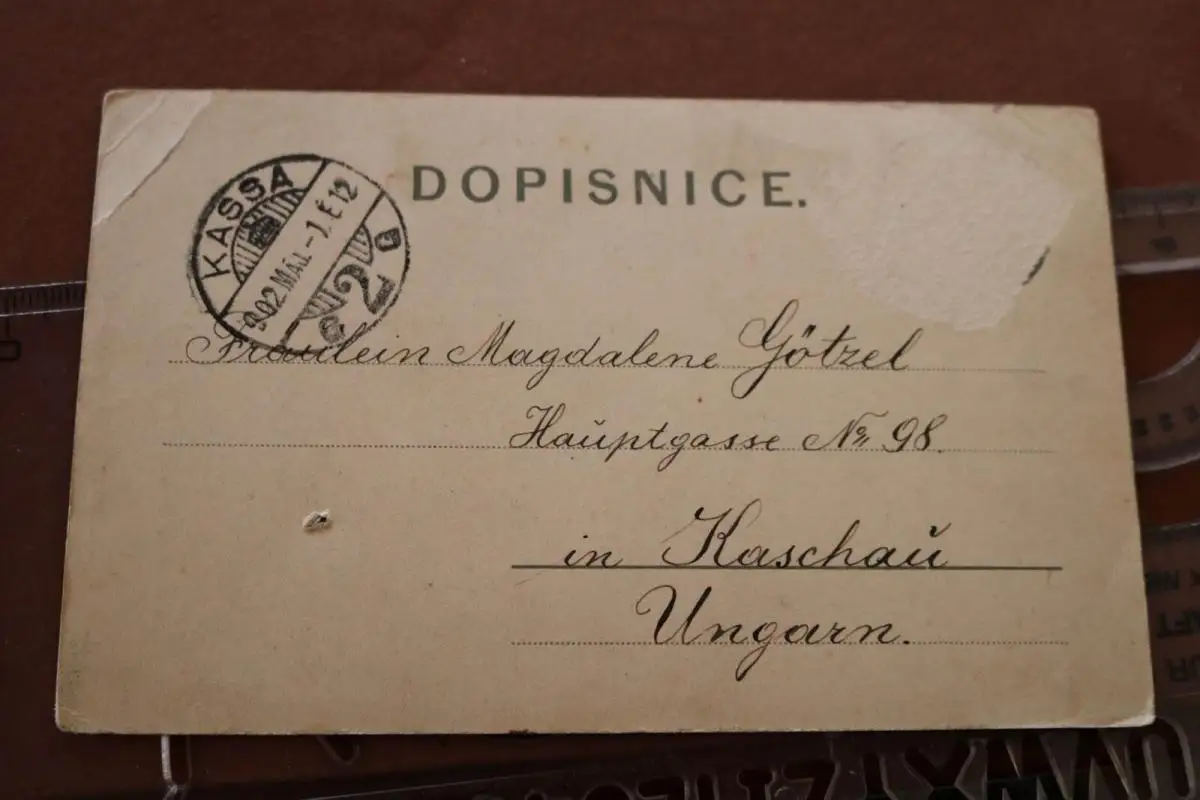 DOPISNICE.
KASSA
902 MÁJ. -1. É 12
2
Fräulein Magdalene Götzel
Hauptgasse No 98.
in Kaschau
Ungarn.